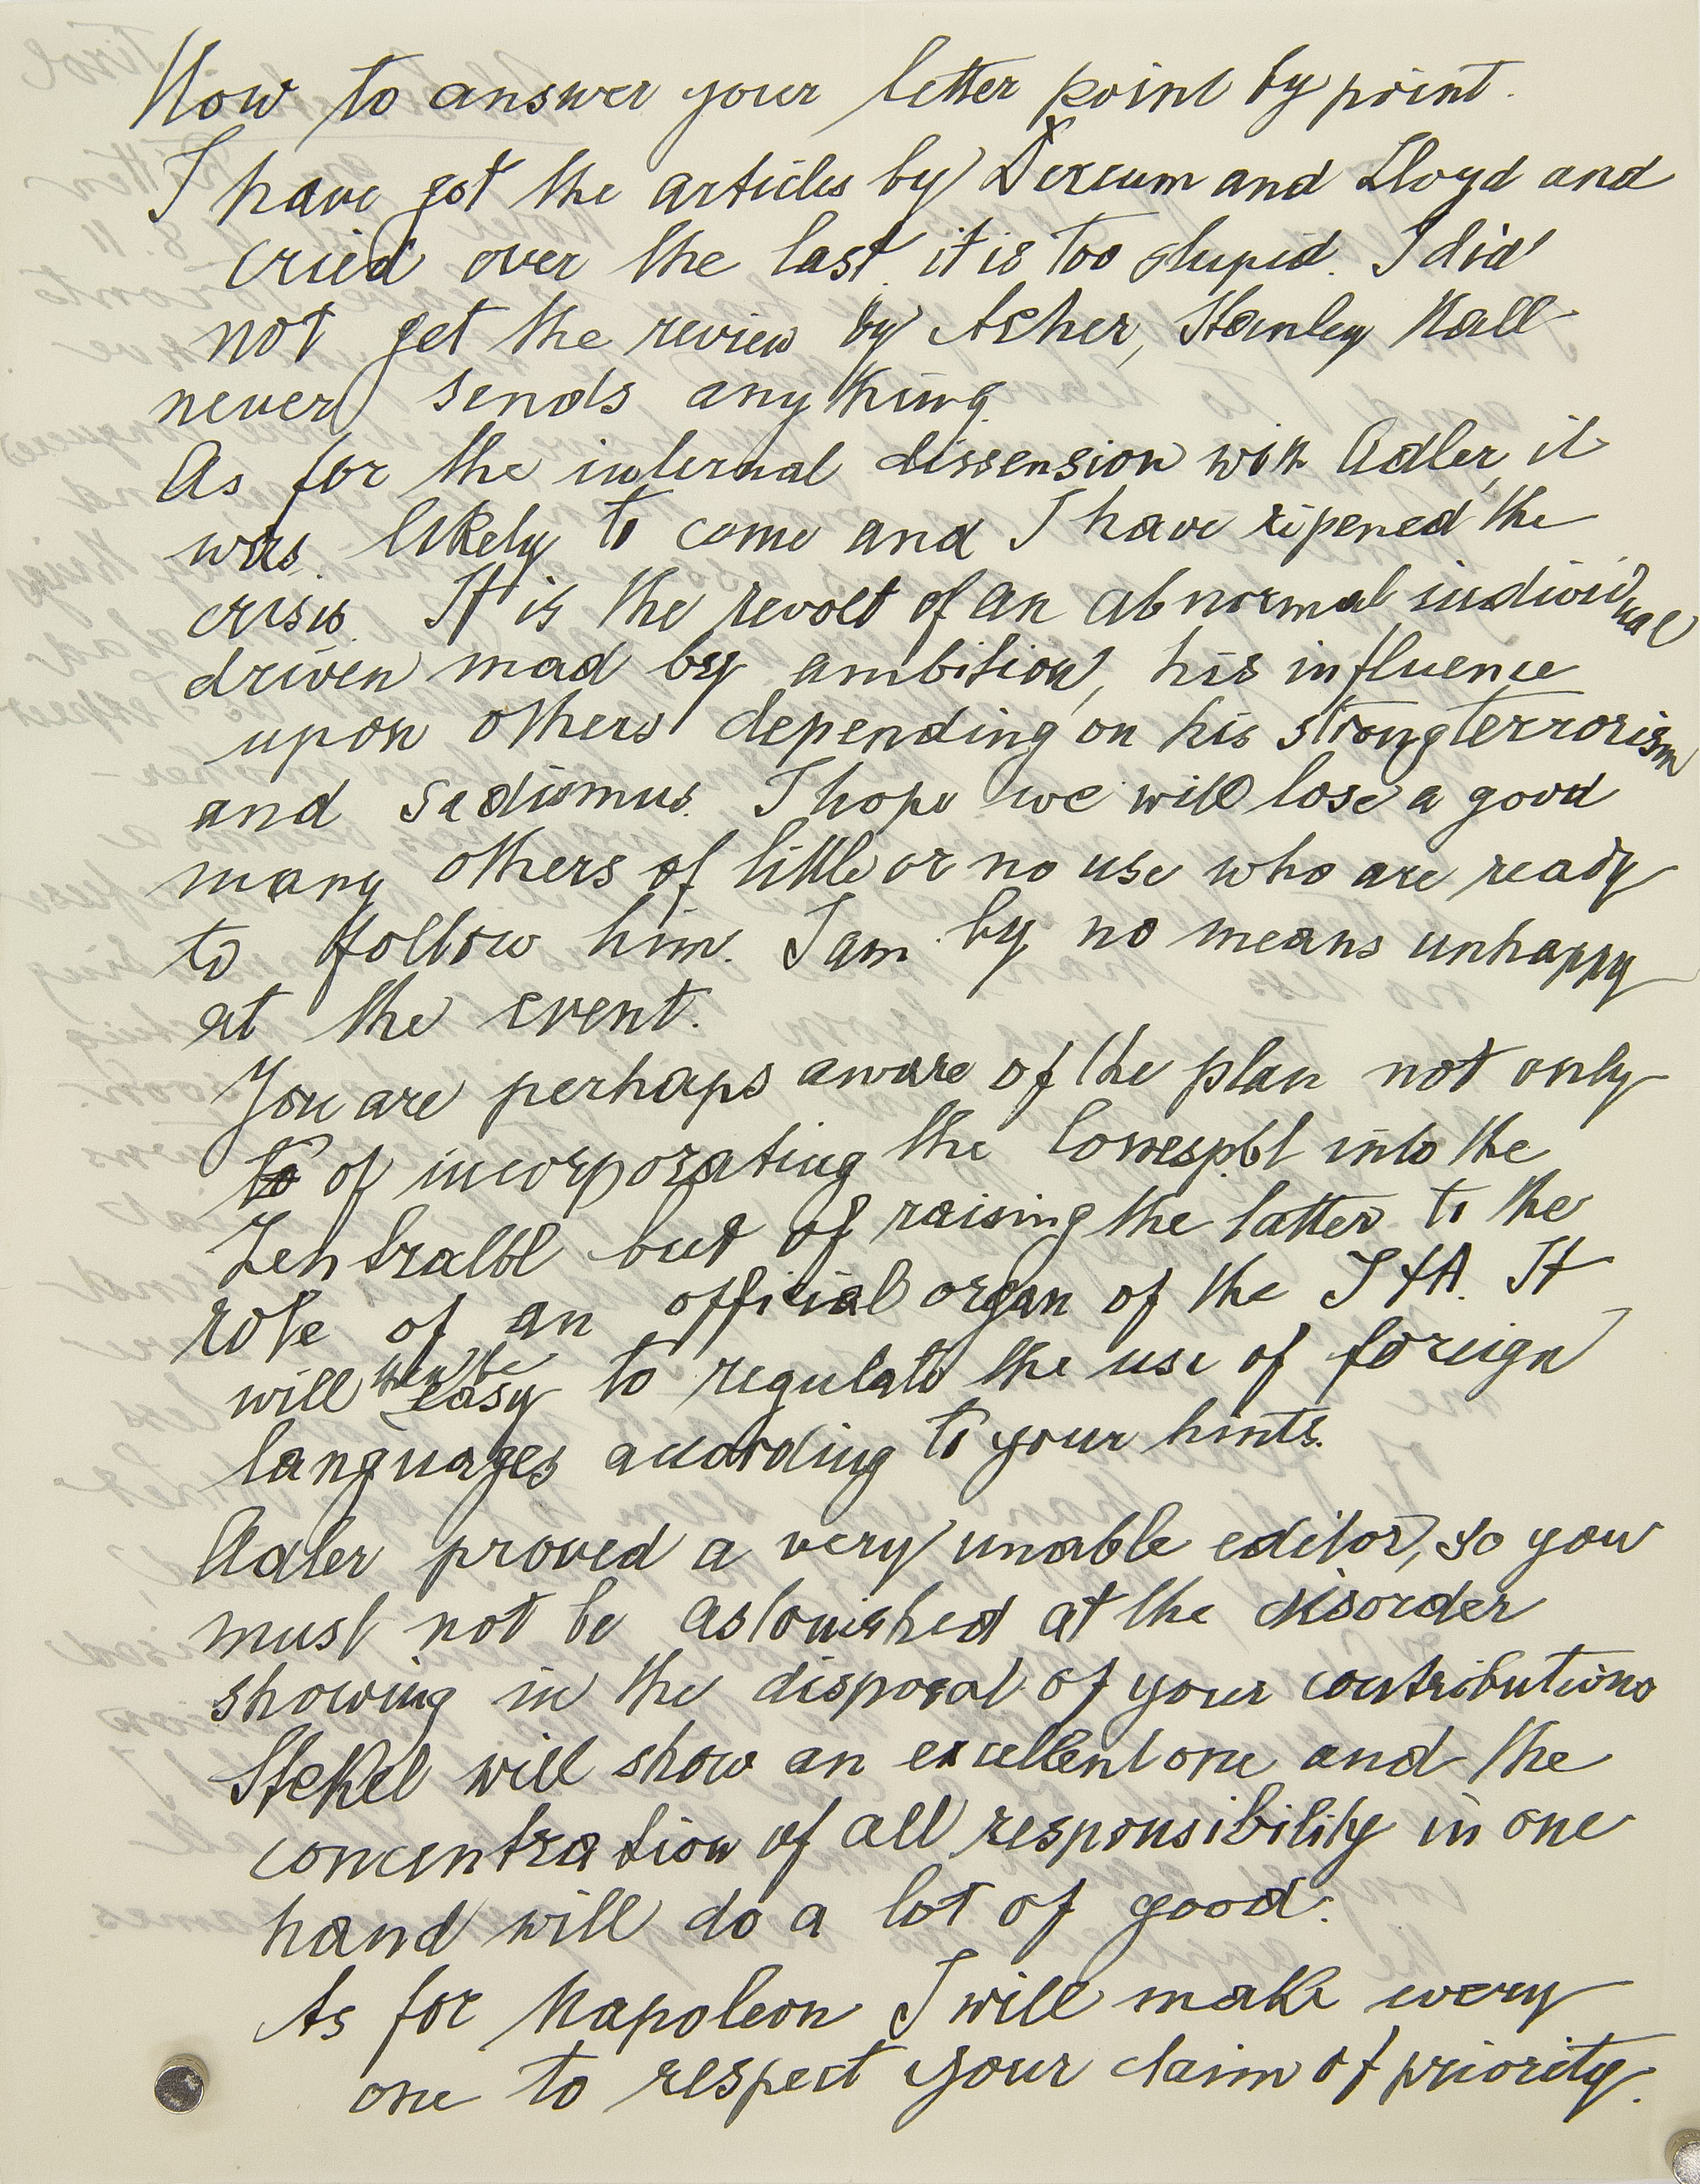 Now to answer your letter point by point.
I have got the articles by Dercum and Lloyd and
cried over the last. it is too stupid. I did
not get the review by Acher, Stanley Hall
never sends anything.
As for the internal dissension with Adler, it
was likely to come and I have ripened the
crisis. It is the revolt of an abnormal individual
driven mad by ambition, his influence
upon others depending on his strong terrorism
and sadismus. I hope we will lose a good
many others of little or no use who are ready
to follow him. I am by no means unhappy
at the event.
You are perhaps aware of the plan not only
to of incorporating the Correspbl into the
Zentralbl but of raising the latter to the
role of an official organ of the I ΨA. It
will then be easy to regulate the use of foreign
languages according to your hints.
Adler proved a very unable editor, so you
must not be astonished at the disorder
showing in the disposal of your contributions
Stekel will show an excellent one and the
concentration of all responsibility in one
hand will do a lot of good.
As for Napoleon I will make every
one to respect your claim of priority.